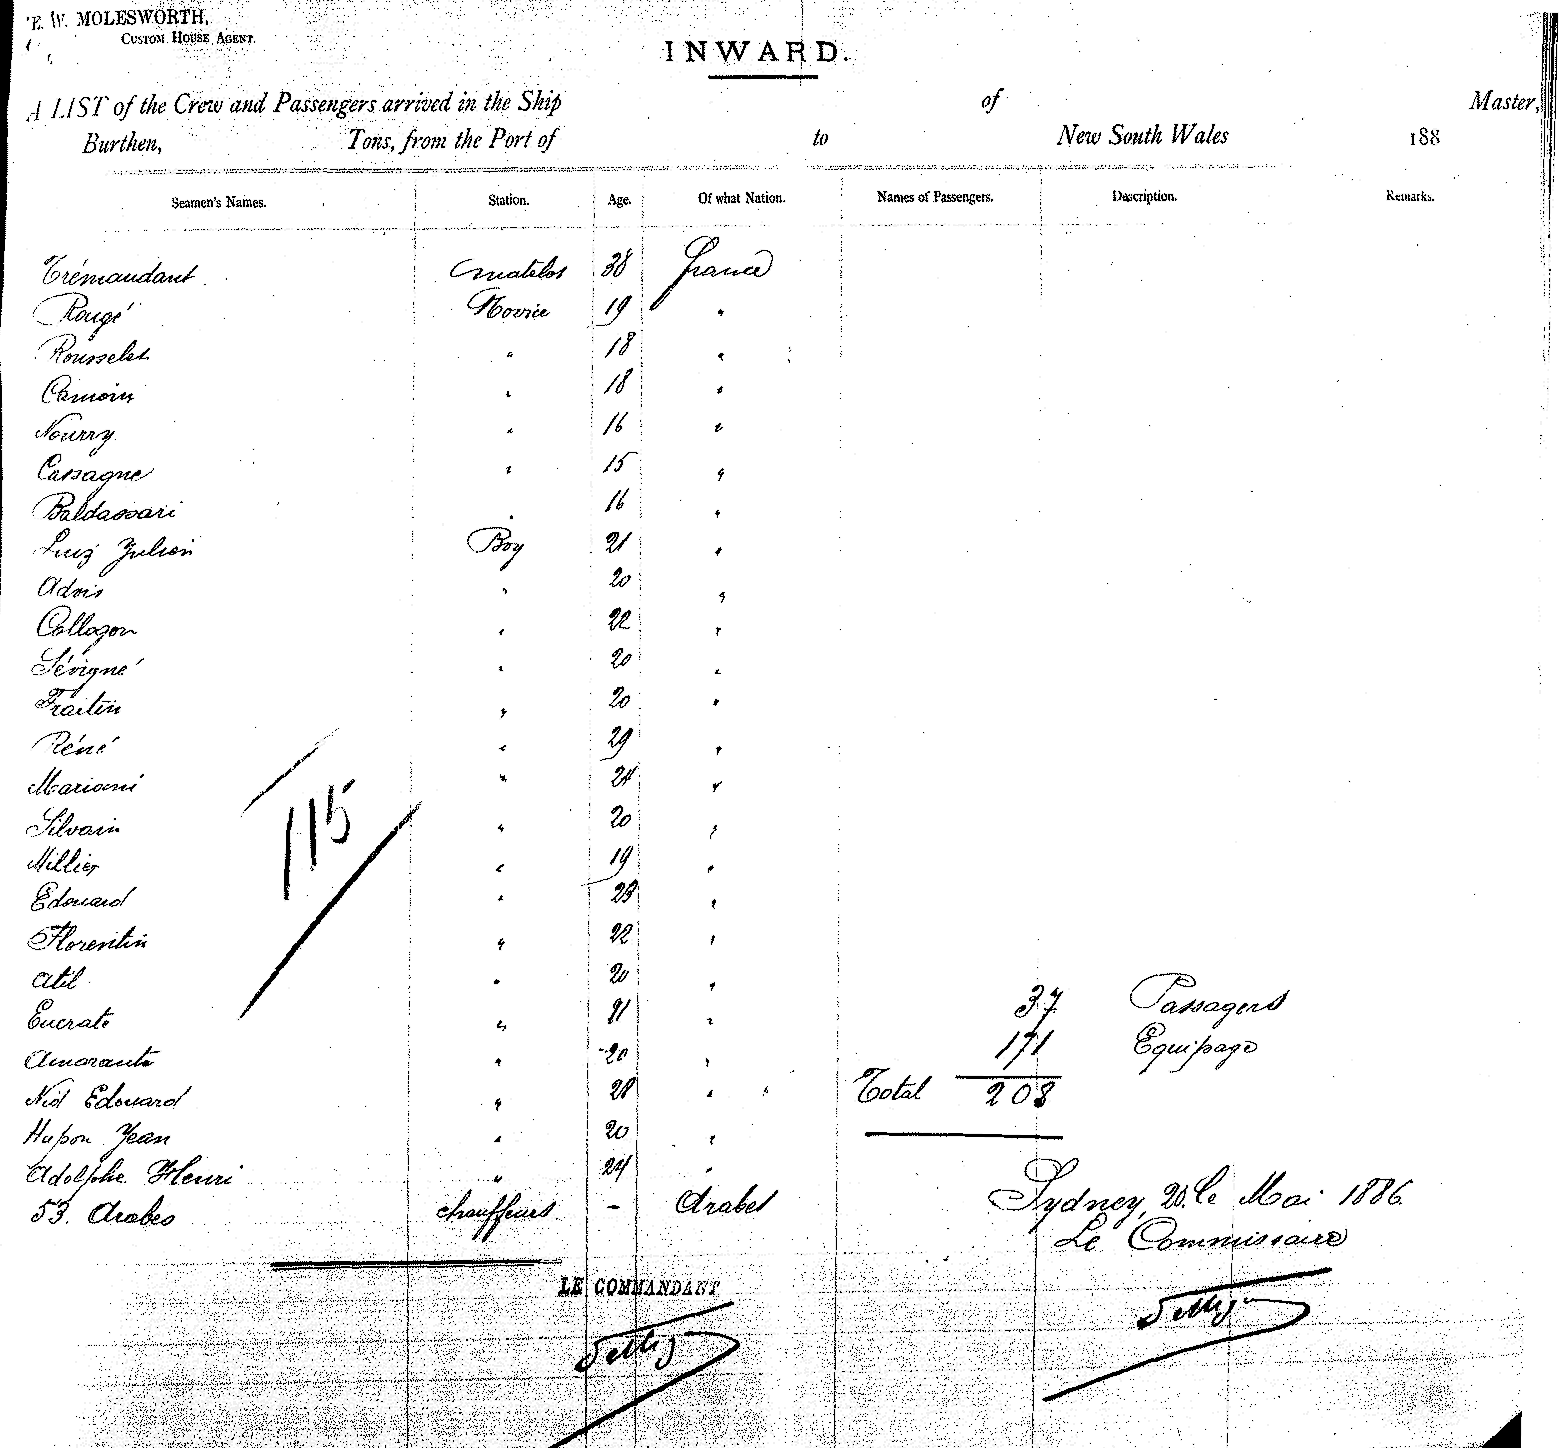 E. W. MOLESWORTH,
CUSTOM HOUSE AGENT.
INWARD.
A LIST of the Crew and Passengers arrived in the Ship of Master,
Burthen, Tons, from the Port of to New South Wales 188
Seamen's Names. Station. Age. Of what Nation. Names of Passengers. Description. Remarks.
Trémaudant matelot 38 France
Rougé Novice 19 "
Rousselet " 18 "
Camoin " 18 "
Nourry " 16 "
Cassagne " 15 "
Baldassari " 16 "
Luiz Julien Boy 21 "
Advis " 20 "
Collogon " 22 "
Sévigné " 20 "
Fraitin " 20 "
Réné " 29 "
Marioni " 24 "
Silvain " 20 "
Millier " 19 "
Edouard " 23 "
Florentin " 22 "
Atil " 20 "
Eucrate " 21 "
Amarante " 20 "
Nid Edouard " 28 "
Hupon Jean " 20 "
Adolphe Henri " 24 "
53. Arabes chauffeurs - Arabes
115
37 Passagers
171 Equipage
Total 208
Sydney, 20. le Mai 1886
Le Commissaire
LE COMMANDANT